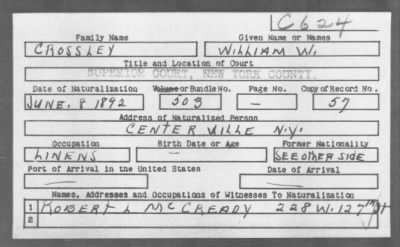 C624
Family Name Given Name or Names
CROSSLEY WILLIAM W.
Title and Location of Court
SUPERIOR COURT, NEW YORK COUNTY.
Date of Naturalization Volume or Bundle No. Page No. Copy of Record No.
JUNE. 8 1892 503 — 57
Address of Naturalized Person
CENTERVILLE N.Y.
Occupation Birth Date or Age Former Nationality
LINENS — SEE OTHER SIDE
Port of Arrival in the United States Date of Arrival
— —
Names, Addresses and Occupations of Witnesses To Naturalization
1 ROBERT L MCCREADY 228 W. 127TH ST
2